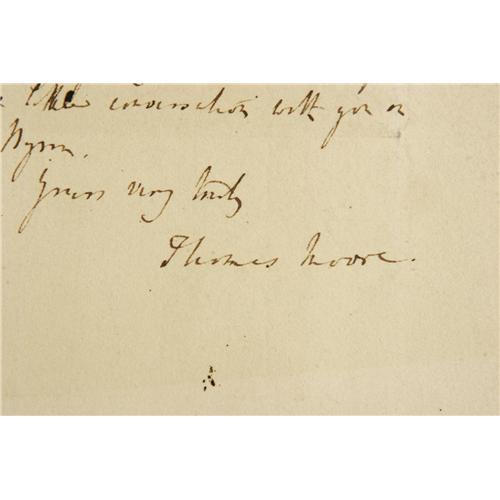 little conversation with you on
Byron.
Yours very truly
Thomas Moore.